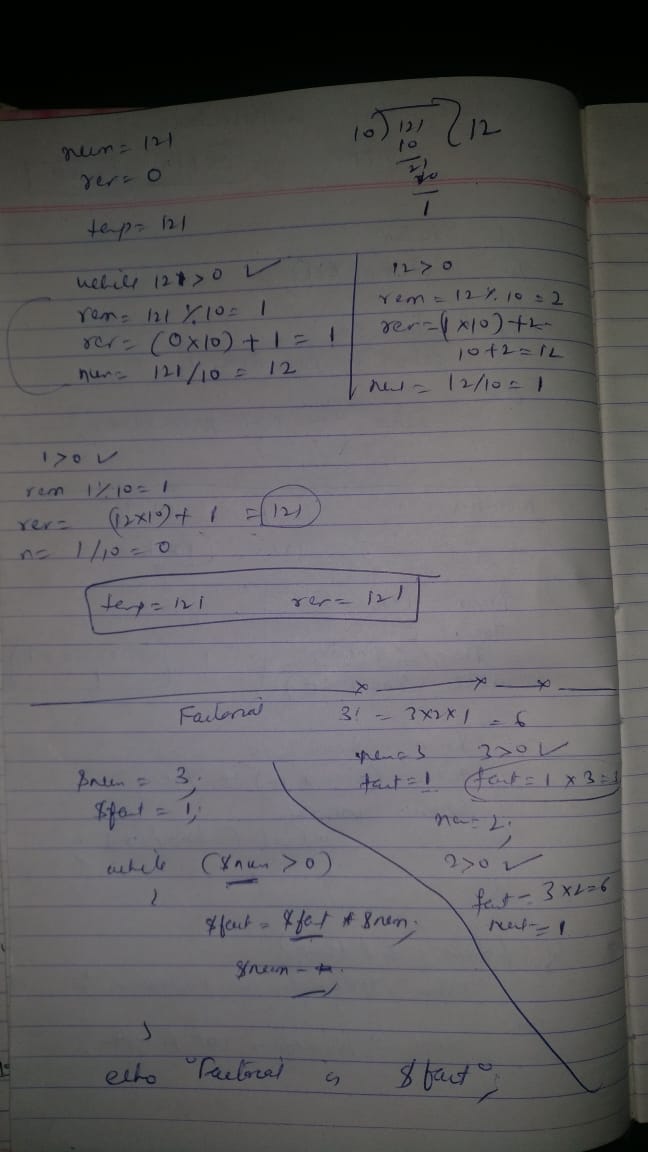 num = 121
rev = 0
temp = 121
10 ) 121 ( 12
10
21
20
1
while 121 > 0 ✓
rem = 121 % 10 = 1
rev = (0x10) + 1 = 1
num = 121/10 = 12
12 > 0
rem = 12 % 10 = 2
rev = (1 x10) + 2
10+2 = 12
num = 12/10 = 1
1 > 0 ✓
rem 1 % 10 = 1
rev = (12x10) + 1 = 121
n = 1/10 = 0
temp = 121 rev = 121
Factorial
3! = 3x2x1 = 6
$num = 3;
$fact = 1;
while ($num > 0)
{
$fact = $fact * $num;
$num --;
}
echo "Factorial is $fact";
num = 3 3>0 ✓
fact = 1 fact = 1 x 3 = 3
num = 2;
2>0 ✓
fact = 3 x2=6
num = 1